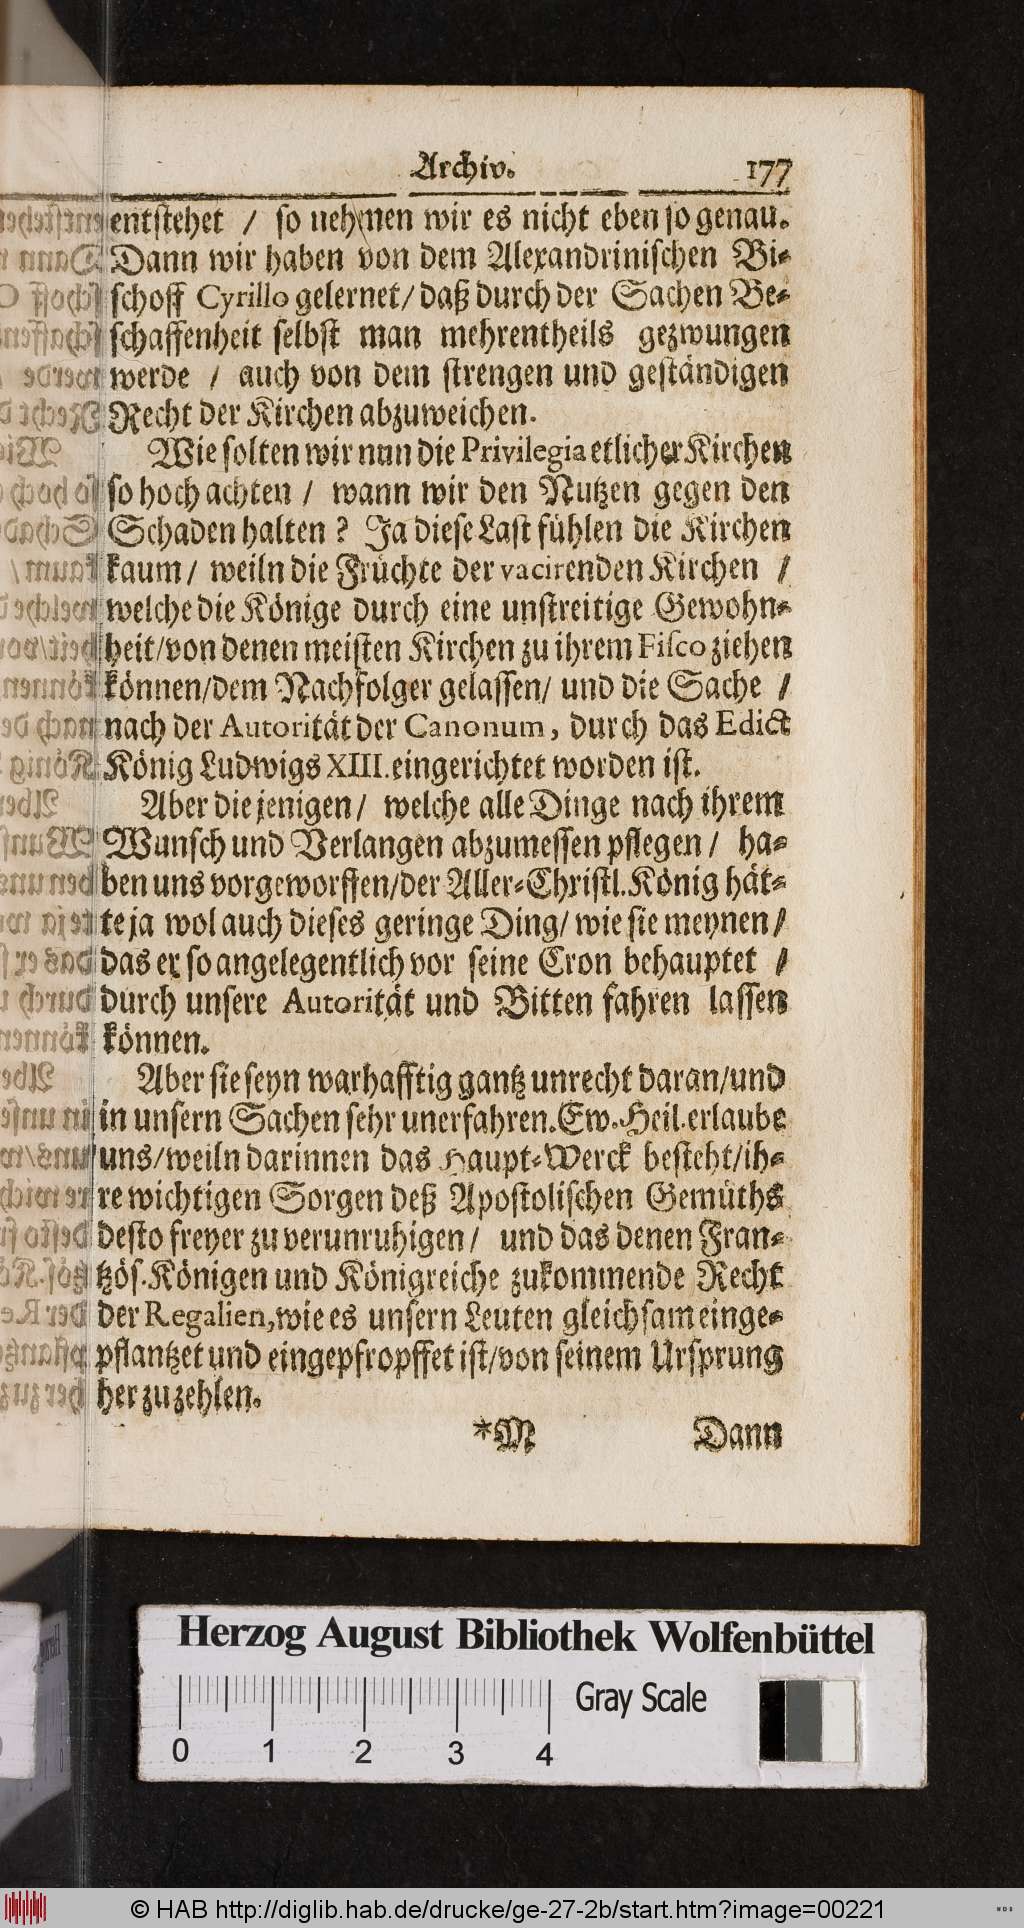 Archiv. 177
entstehet / so nehmen wir es nicht eben so genau.
Dann wir haben von dem Alexandrinischen Bi-
schoff Cyrillo gelernet/ daß durch der Sachen Be-
schaffenheit selbst man mehrentheils gezwungen
werde / auch von dem strengen und geständigen
Recht der Kirchen abzuweichen.
Wie solten wir nun die Privilegia etlicher Kirchen
so hoch achten / wann wir den Nutzen gegen den
Schaden halten ? Ja diese Last fühlen die Kirchen
kaum / weiln die Früchte der vacirenden Kirchen /
welche die Könige durch eine unstreitige Gewohn-
heit/von denen meisten Kirchen zu ihrem Fisco ziehen
können/dem Nachfolger gelassen/ und die Sache /
nach der Autorität der Canonum, durch das Edict
König Ludwigs XIII. eingerichtet worden ist.
Aber die jenigen / welche alle Dinge nach ihrem
Wunsch und Verlangen abzumessen pflegen / ha-
ben uns vorgeworffen/der Aller-Christl. König hät-
te ja wol auch dieses geringe Ding/ wie sie meynen/
das er so angelegentlich vor seine Cron behauptet /
durch unsere Autorität und Bitten fahren lassen
können.
Aber sie seyn warhafftig gantz unrecht daran/und
in unsern Sachen sehr unerfahren. Ew. Heil. erlaube
uns/weiln darinnen das Haupt-Werck besteht/ih-
re wichtigen Sorgen deß Apostolischen Gemüths
desto freyer zu verunruhigen / und das denen Fran-
tzös. Königen und Königreiche zukommende Recht
der Regalien, wie es unsern Leuten gleichsam einge-
pflantzet und eingepfropffet ist/von seinem Ursprung
her zu zehlen.
*M Dann
Herzog August Bibliothek Wolfenbüttel
Gray Scale
0 1 2 3 4
© HAB http://diglib.hab.de/drucke/ge-27-2b/start.htm?image=00221